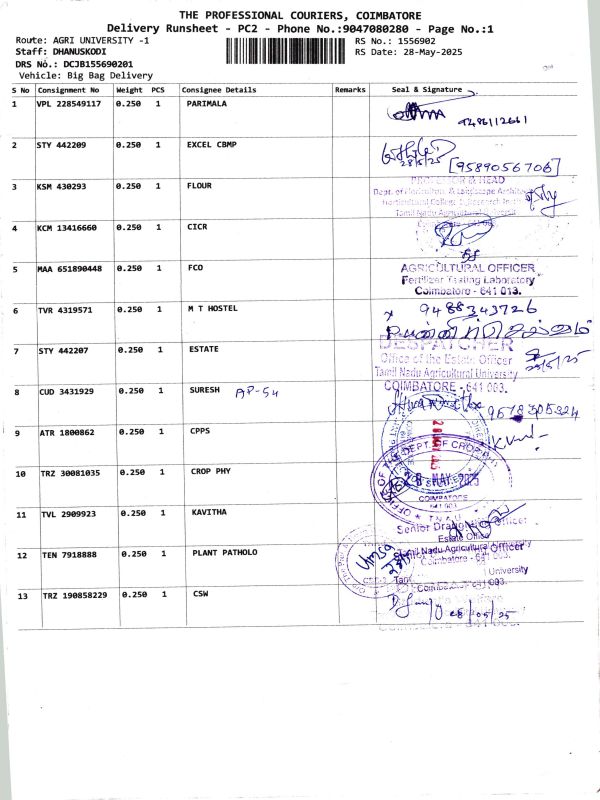 THE PROFESSIONAL COURIERS, COIMBATORE
Delivery Runsheet - PC2 - Phone No.:9047080280 - Page No.:1
Route: AGRI UNIVERSITY -1
RS No.: 1556902
Staff: DHANUSKODI
RS Date: 28-May-2025
DRS No.: DCJB155690201
Vehicle: Big Bag Delivery
S No Consignment No Weight PCS Consignee Details Remarks Seal & Signature
1 VPL 228549117 0.250 1 PARIMALA
9486112661
2 STY 442209 0.250 1 EXCEL CBMP
28/5/25 [9589056706]
3 KSM 430293 0.250 1 FLOUR
PROFESSOR & HEAD
Tamil Nadu Agricultural University
4 KCM 13416660 0.250 1 CICR
5 MAA 651890448 0.250 1 FCO
AGRICULTURAL OFFICER
Fertilizer Testing Laboratory
Coimbatore - 641 013.
6 TVR 4319571 0.250 1 M T HOSTEL
9488343726
7 STY 442207 0.250 1 ESTATE
DESPATCHER
Office of the Estate Officer
Tamil Nadu Agricultural University
COIMBATORE - 641 003.
8 CUD 3431929 0.250 1 SURESH AP-54
9 ATR 1800862 0.250 1 CPPS
10 TRZ 30081035 0.250 1 CROP PHY
COIMBATORE
641 003
11 TVL 2909923 0.250 1 KAVITHA
Estate Office
12 TEN 7918888 0.250 1 PLANT PATHOLO
Tamil Nadu Agricultural
Coimbatore - 641
University
13 TRZ 190858229 0.250 1 CSW
28/05/25